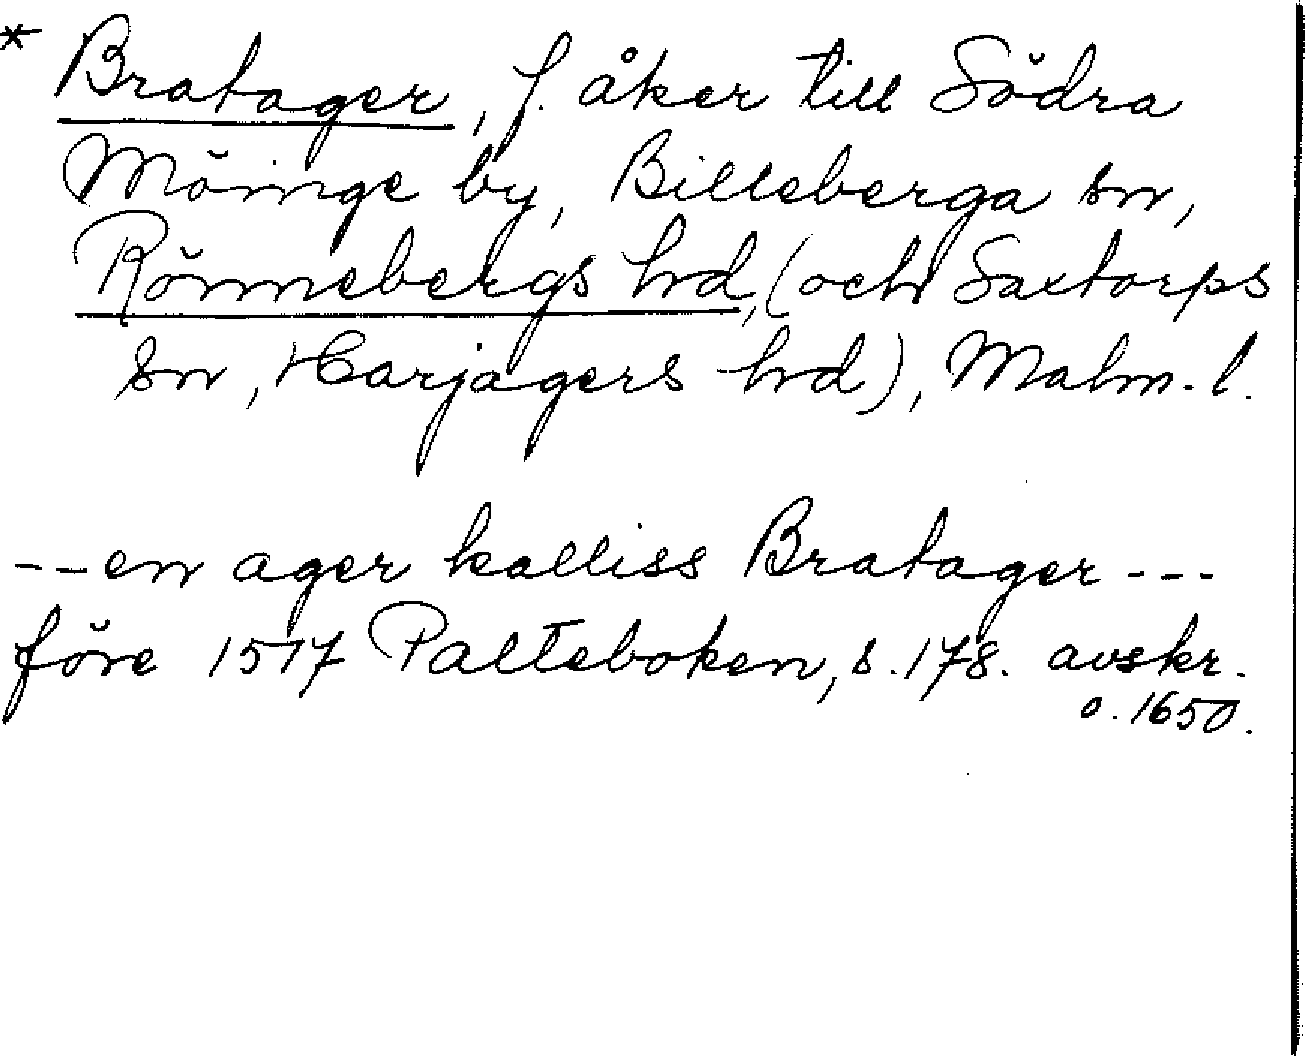 * Bratager, f. åker till Södra
Möinge by, Billeberga sn,
Rönnebergs hrd, (och Saxtorps
sn, Harjagers hrd), Malm. l.
-- en ager kalliss Bratager ---
före 1517 Palteboken, s. 178. avskr.
o. 1650.